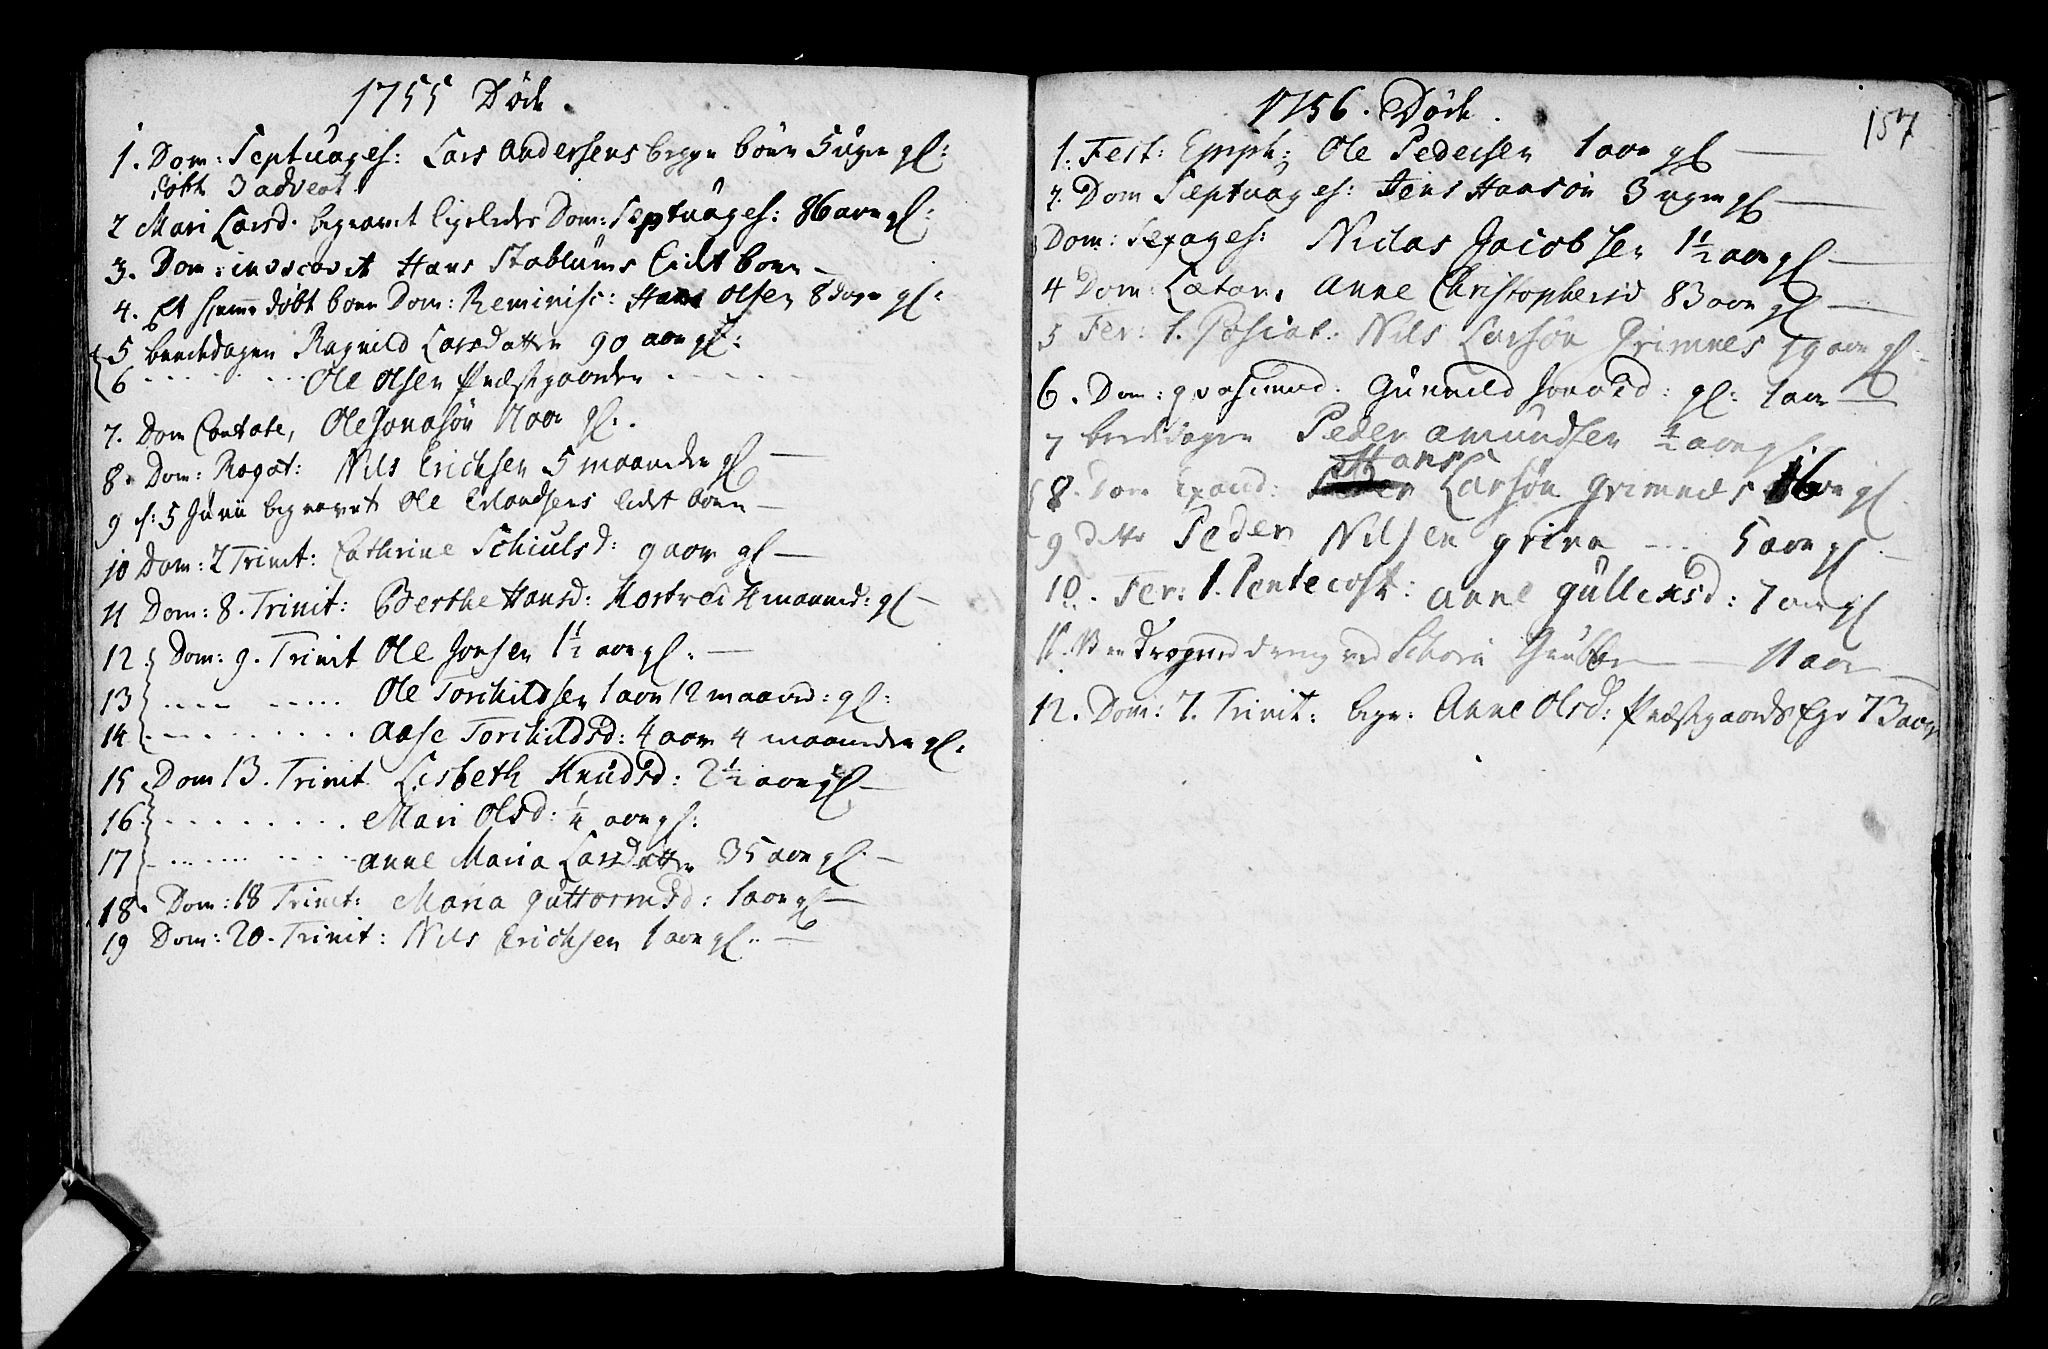 1755 Döde.
1. Dom: Septuages: Lars Andersens begge börn 5 uger gl:
döbte 3 advent
2 Mari Larsd. begravet ligeledes Dom: Septuages: 86 aar gl:
3. Dom: invocavit Hans Stablums lidet barn –
4. Et hjemme döbt barn Dom: Reminisc: Hans Olsen 8 dage gl:
5 beededagen Ragnild Larsdatter 90 aar gl:
6 . . . . . . Ole Olsen Præstgaarden . - - - -
7. Dom Cantate, Ole Jonasön 17 aar gl:.
8. Dom: Rogat: Nils Erichsen 5 maaneder gl –
9 d: 5 Juni begravet Ole Erlandsens lidet barn –
10 Dom: 2 Trinit: Cathrine Schiulsd: 9 aar gl –
11 Dom: 8. Trinit: Berthe Hansd: 4 maaned: gl –
12 Dom: 9. Trinit Ole Jonsen 1½ aar gl. –
13 .... ..... Ole Torchildsen 1 aar 12 maaned: gl:
14 - - . . . . . . . . Aase Torchildsd: 4 aar 4 maaneder gl.
15 Dom 13. Trinit Lisbeth Knudsd: 2½ aar gl –
16 . . . . . . . . Mari Olsd: ¼ aar gl:
17 - ... ... ... . . Anne Maria Larsdatter 35 aar gl. –
18. Dom: 18 Trinit: Maria Guttormsd: 1 aar gl –
19 Dom: 20. Trinit: Nils Erichsen 1 aar gl. –
1756. Döde.
157
1. Fest: Epiph: Ole Pedersen 1 aar gl –
2. Dom Septuages: Jens Hansön 3 uger gl –
Dom: Sexages: Niclas Jacobsen 1½ aar gl –
4 Dom: Lætare Anne Christophersd 83 aar gl –
5 Fer: 1. Pascat: Nils Larsön Grimnes 19 aar gl –
6. Dom: qvasimod: Gunnild Jonasd: gl: 1 aar –
7 beededagen Peder Amundsen ½ aar gl
Hans
8. Dom Exaud: Peder Larsön Grimnes 16 aar gl.
9 ditto Peder Nilsen grina - .. 5 aar gl. –
10. Fer: 1. Pentecost: Anne Gullexsd: 7 aar gl
11. dreng ved 11 aar –
12. Dom: 7. Trinit: begr: Anne Olsd: Præstgaards Eje 73 aar